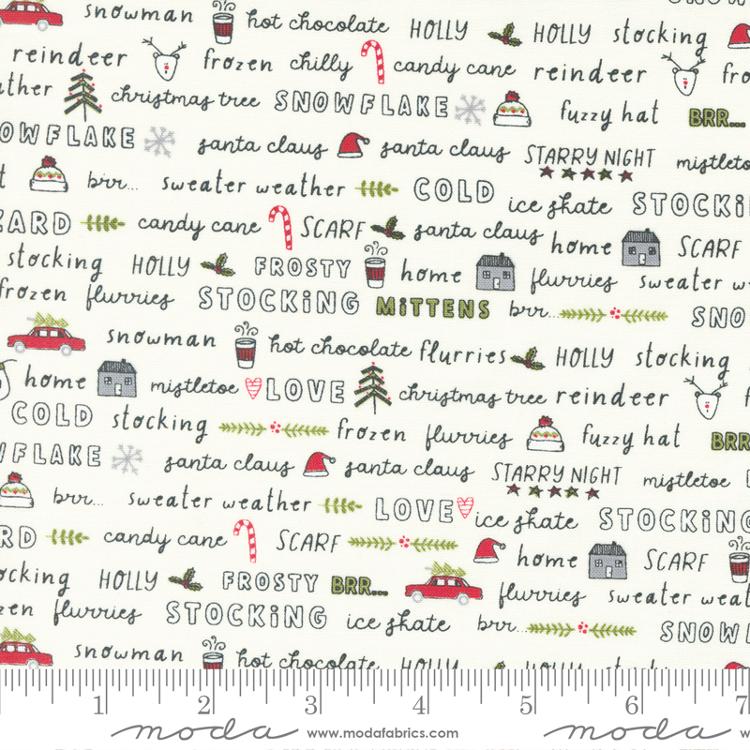 snowman hot chocolate HOLLY HOLLY stocking
reindeer frozen chilly candy cane reindeer
christmas tree SNOWFLAKE fuzzy hat BRR...
SNOWFLAKE santa claus santa claus STARRY NIGHT
brr... sweater weather COLD ice skate
candy cane SCARF santa claus home SCARF
stocking HOLLY FROSTY home flurries sweater
frozen flurries STOCKING MITTENS brr...
snowman hot chocolate flurries HOLLY stocking
home mistletoe LOVE christmas tree reindeer
COLD stocking frozen flurries fuzzy hat
santa claus santa claus STARRY NIGHT mistletoe
brr... sweater weather LOVE ice skate STOCKING
candy cane SCARF home SCARF
HOLLY FROSTY BRR... flurries sweater
flurries STOCKING ice skate brr...
snowman hot chocolate HOLLY HOLLY
1 2 3 4 5 6 7
moda www.modafabrics.com moda